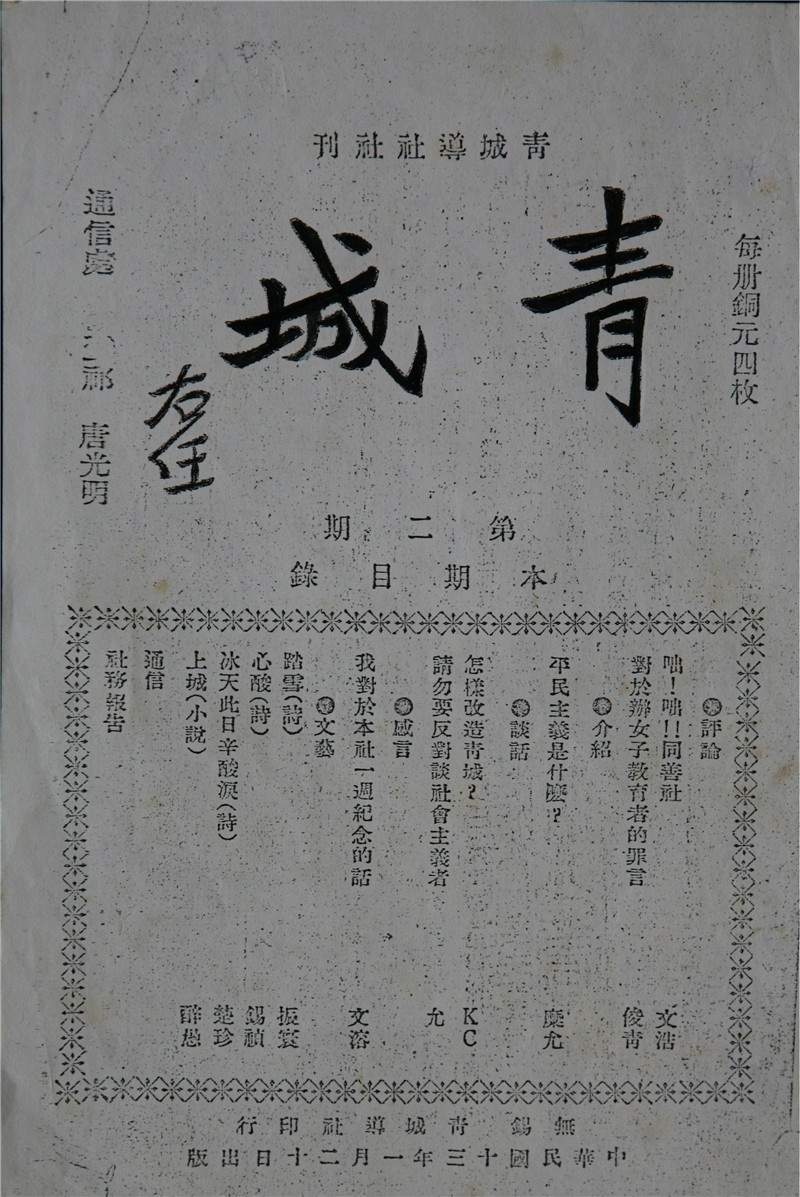 青城導社社刊
每册銅元四枚
青城
右任
通信處
唐光明
第二期
本期目錄
評論
咄！咄！！同善社 文浩
對於辦女子教育者的罪言 俊青
介紹
平民主義是什麽？ 糜允
談話
怎樣改造青城？ KC
請勿要反對談社會主義者 允
感言
我對於本社一週紀念的話 文溶
文藝
踏雪（詩） 振寰
心酸（詩） 錫禎
冰天此日辛酸淚（詩） 楚珍
上城（小說） 醉愚
通信
社務報告
無錫 青城導社印行
中華民國十三年一月二十日出版